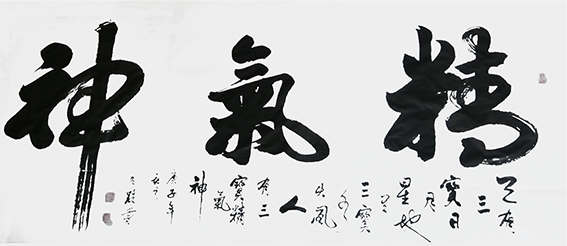 精氣神
天有
三
寶日
月
星地
三寶
水
火風
人
有三
寶精
氣
神
庚子年
書